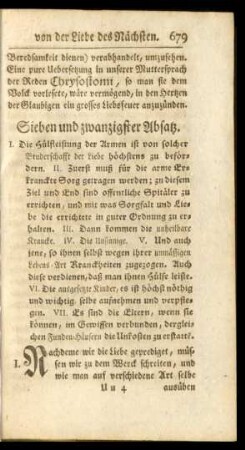 von der Liebe des Nächsten. 679
Beredsamkeit dienen) verabhandelt, umzusehen.
Eine pure Uebersetzung in unserer Muttersprach
der Reden Chrysostomi, so man sie dem
Volck vorlesete, wäre vermögend, in den Hertzen
der Glaubigen ein grosses Liebsfeuer anzuzünden.
Sieben und zwanzigster Absatz.
I. Die Hülfleistung der Armen ist von solcher
Bruderschafft der Liebe höchstens zu beför-
dern. II. Zuerst muß für die arme Er-
krancke Sorg getragen werden; zu diesem
Ziel und End sind öffentliche Spitäler zu
errichten, und mit was Sorgfalt und Lie-
be die errichtete in guter Ordnung zu er-
halten. III. Dann kommen die unheilbare
Krancke. IV. Die Unsinnige. V. Und auch
jene, so ihnen selbst wegen ihrer unmässigen
Lebens-Art Kranckheiten zugezogen. Auch
diese verdienen, daß man ihnen Hülfe leiste.
VI. Die ausgesetzte Kinder, es ist höchst nöthig
und wichtig, selbe aufnehmen und verpfle-
gen. VII. Es sind die Eltern, wenn sie
können, im Gewissen verbunden, dergleic
chen Funden-Häusern die Unkosten zu erstatten.
I. Nachdeme wir die Liebe geprediget, müs-
sen wir zu dem Werck schreiten, und
wie man auf verschiedene Art selbe
Uu 4 ausüben